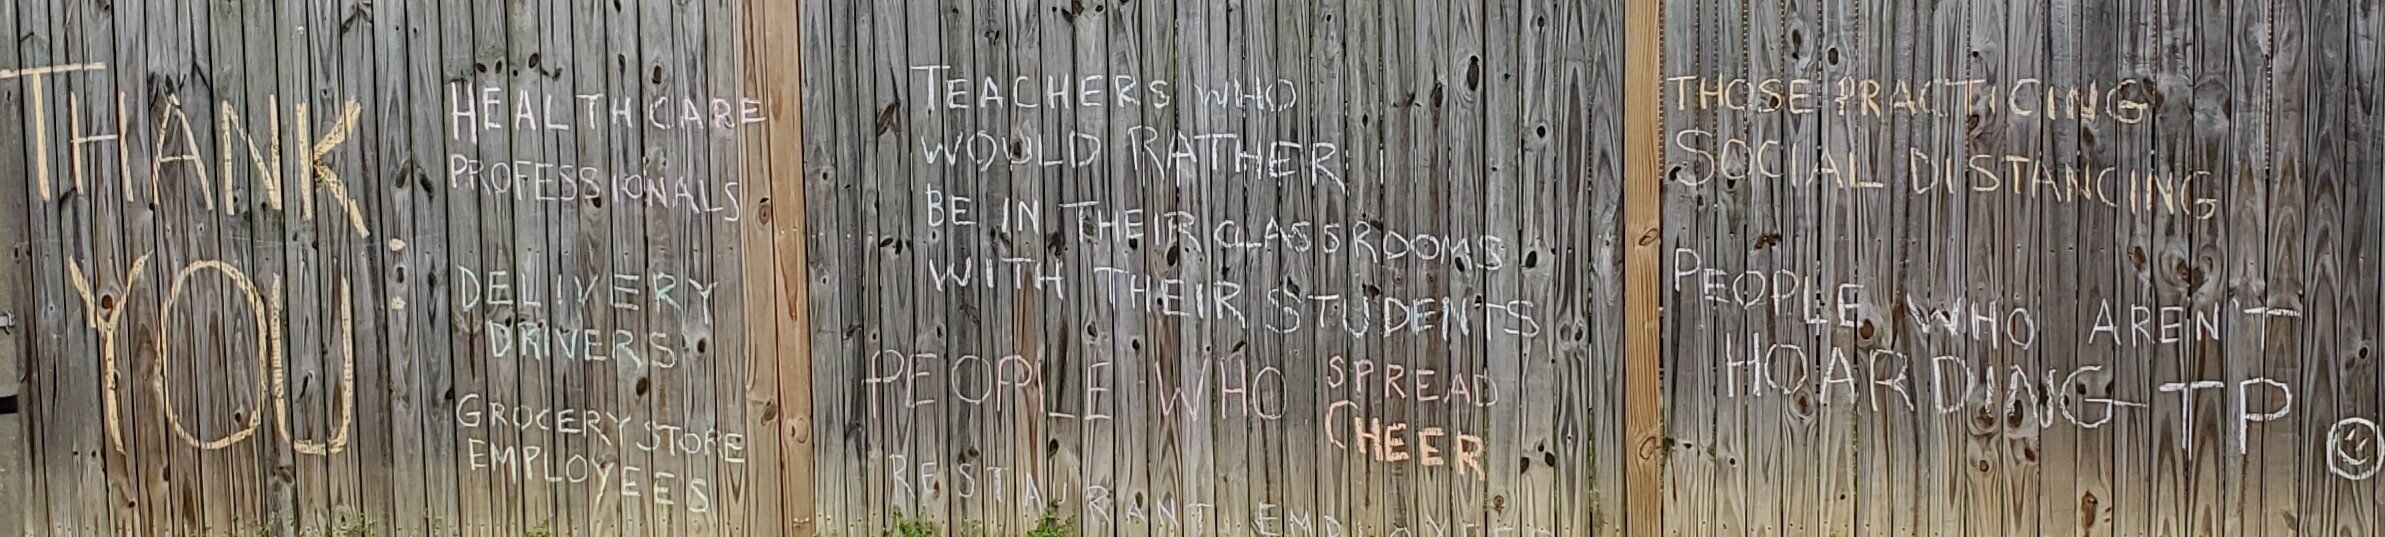 THANK
YOU:
HEALTHCARE
PROFESSIONALS
DELIVERY
DRIVERS
GROCERY STORE
EMPLOYEES
TEACHERS WHO
WOULD RATHER
BE IN THEIR CLASSROOMS
WITH THEIR STUDENTS
PEOPLE WHO SPREAD
CHEER
RESTAURANT EMPLOYEES
THOSE PRACTICING
SOCIAL DISTANCING
PEOPLE WHO AREN'T
HOARDING TP